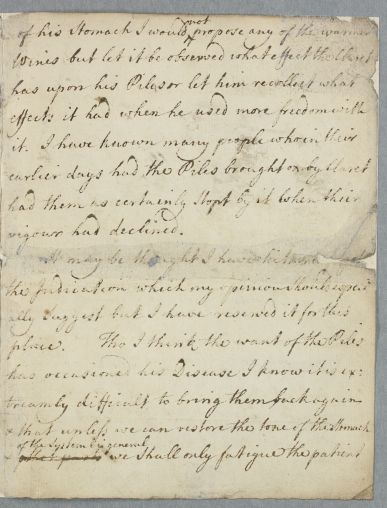 of his Stomach I would not propose any of the warmer
Wines but let it be observed what effect the Claret
has upon his Piles or let him recollect what
effects it had when he used more freedom with
it. I have known many people who in their
earlier days had the Piles brought on by Claret
had them as certainly Stopt by it when their
vigour had declined.
It may be thought I have
the Indication which my opinion should especi
ally Suggest but I have reserved it for this
place. Tho I think the want of the Piles
has occasioned his Disease I know it is ex:
treamly difficult to bring them back again
& that unless we can restore the tone of the Stomach
of the System in general
& we Shall only fatigue the patient